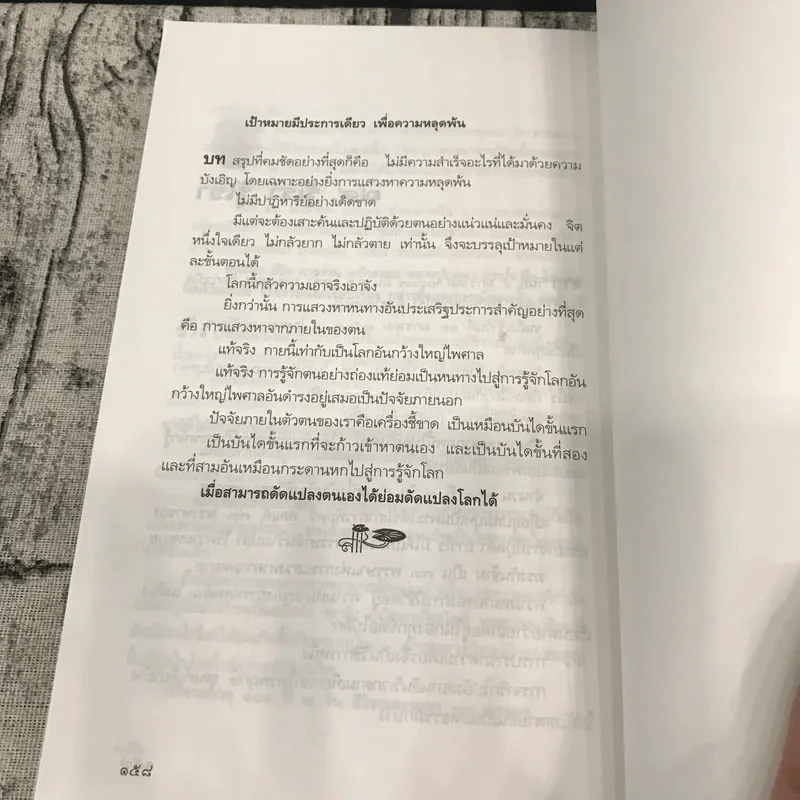 เป้าหมายมีประการเดียว เพื่อความหลุดพ้น
บท สรุปที่คมชัดอย่างที่สุดก็คือ ไม่มีความสำเร็จอะไรที่ได้มาด้วยความ
บังเอิญ โดยเฉพาะอย่างยิ่งการแสวงหาความหลุดพ้น
ไม่มีปาฏิหาริย์อย่างเด็ดขาด
มีแต่จะต้องเสาะค้นและปฏิบัติด้วยตนอย่างแน่วแน่และมั่นคง จิต
หนึ่งใจเดียว ไม่กลัวยาก ไม่กลัวตาย เท่านั้น จึงจะบรรลุเป้าหมายในแต่
ละขั้นตอนได้
โลกนี้กลัวความเอาจริงเอาจัง
ยิ่งกว่านั้น การแสวงหาหนทางอันประเสริฐประการสำคัญอย่างที่สุด
คือ การแสวงหาจากภายในของตน
แท้จริง กายนี้เท่ากับเป็นโลกอันกว้างใหญ่ไพศาล
แท้จริง การรู้จักตนอย่างถ่องแท้ย่อมเป็นหนทางไปสู่การรู้จักโลกอัน
กว้างใหญ่ไพศาลอันดำรงอยู่เสมอเป็นปัจจัยภายนอก
ปัจจัยภายในตัวตนของเราคือเครื่องชี้ขาด เป็นเหมือนบันไดขั้นแรก
เป็นบันไดขั้นแรกที่จะก้าวเข้าหาตนเอง และเป็นบันไดขั้นที่สอง
และที่สามอันเหมือนกระดานหกไปสู่การรู้จักโลก
เมื่อสามารถดัดแปลงตนเองได้ย่อมดัดแปลงโลกได้
๑๕๘